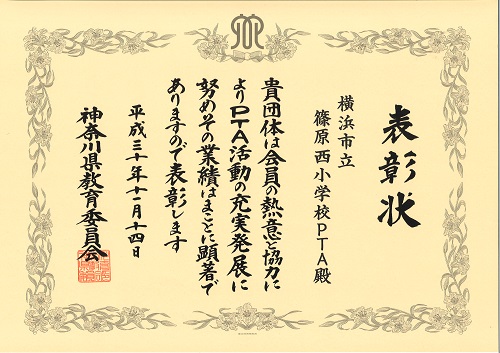 表彰状
横浜市立
篠原西小学校PTA殿
貴団体は会員の熱意と協力に
よりPTA活動の充実発展に
努めその業績はまことに顕著で
ありますので表彰します
平成三十年十一月十四日
神奈川県教育委員会